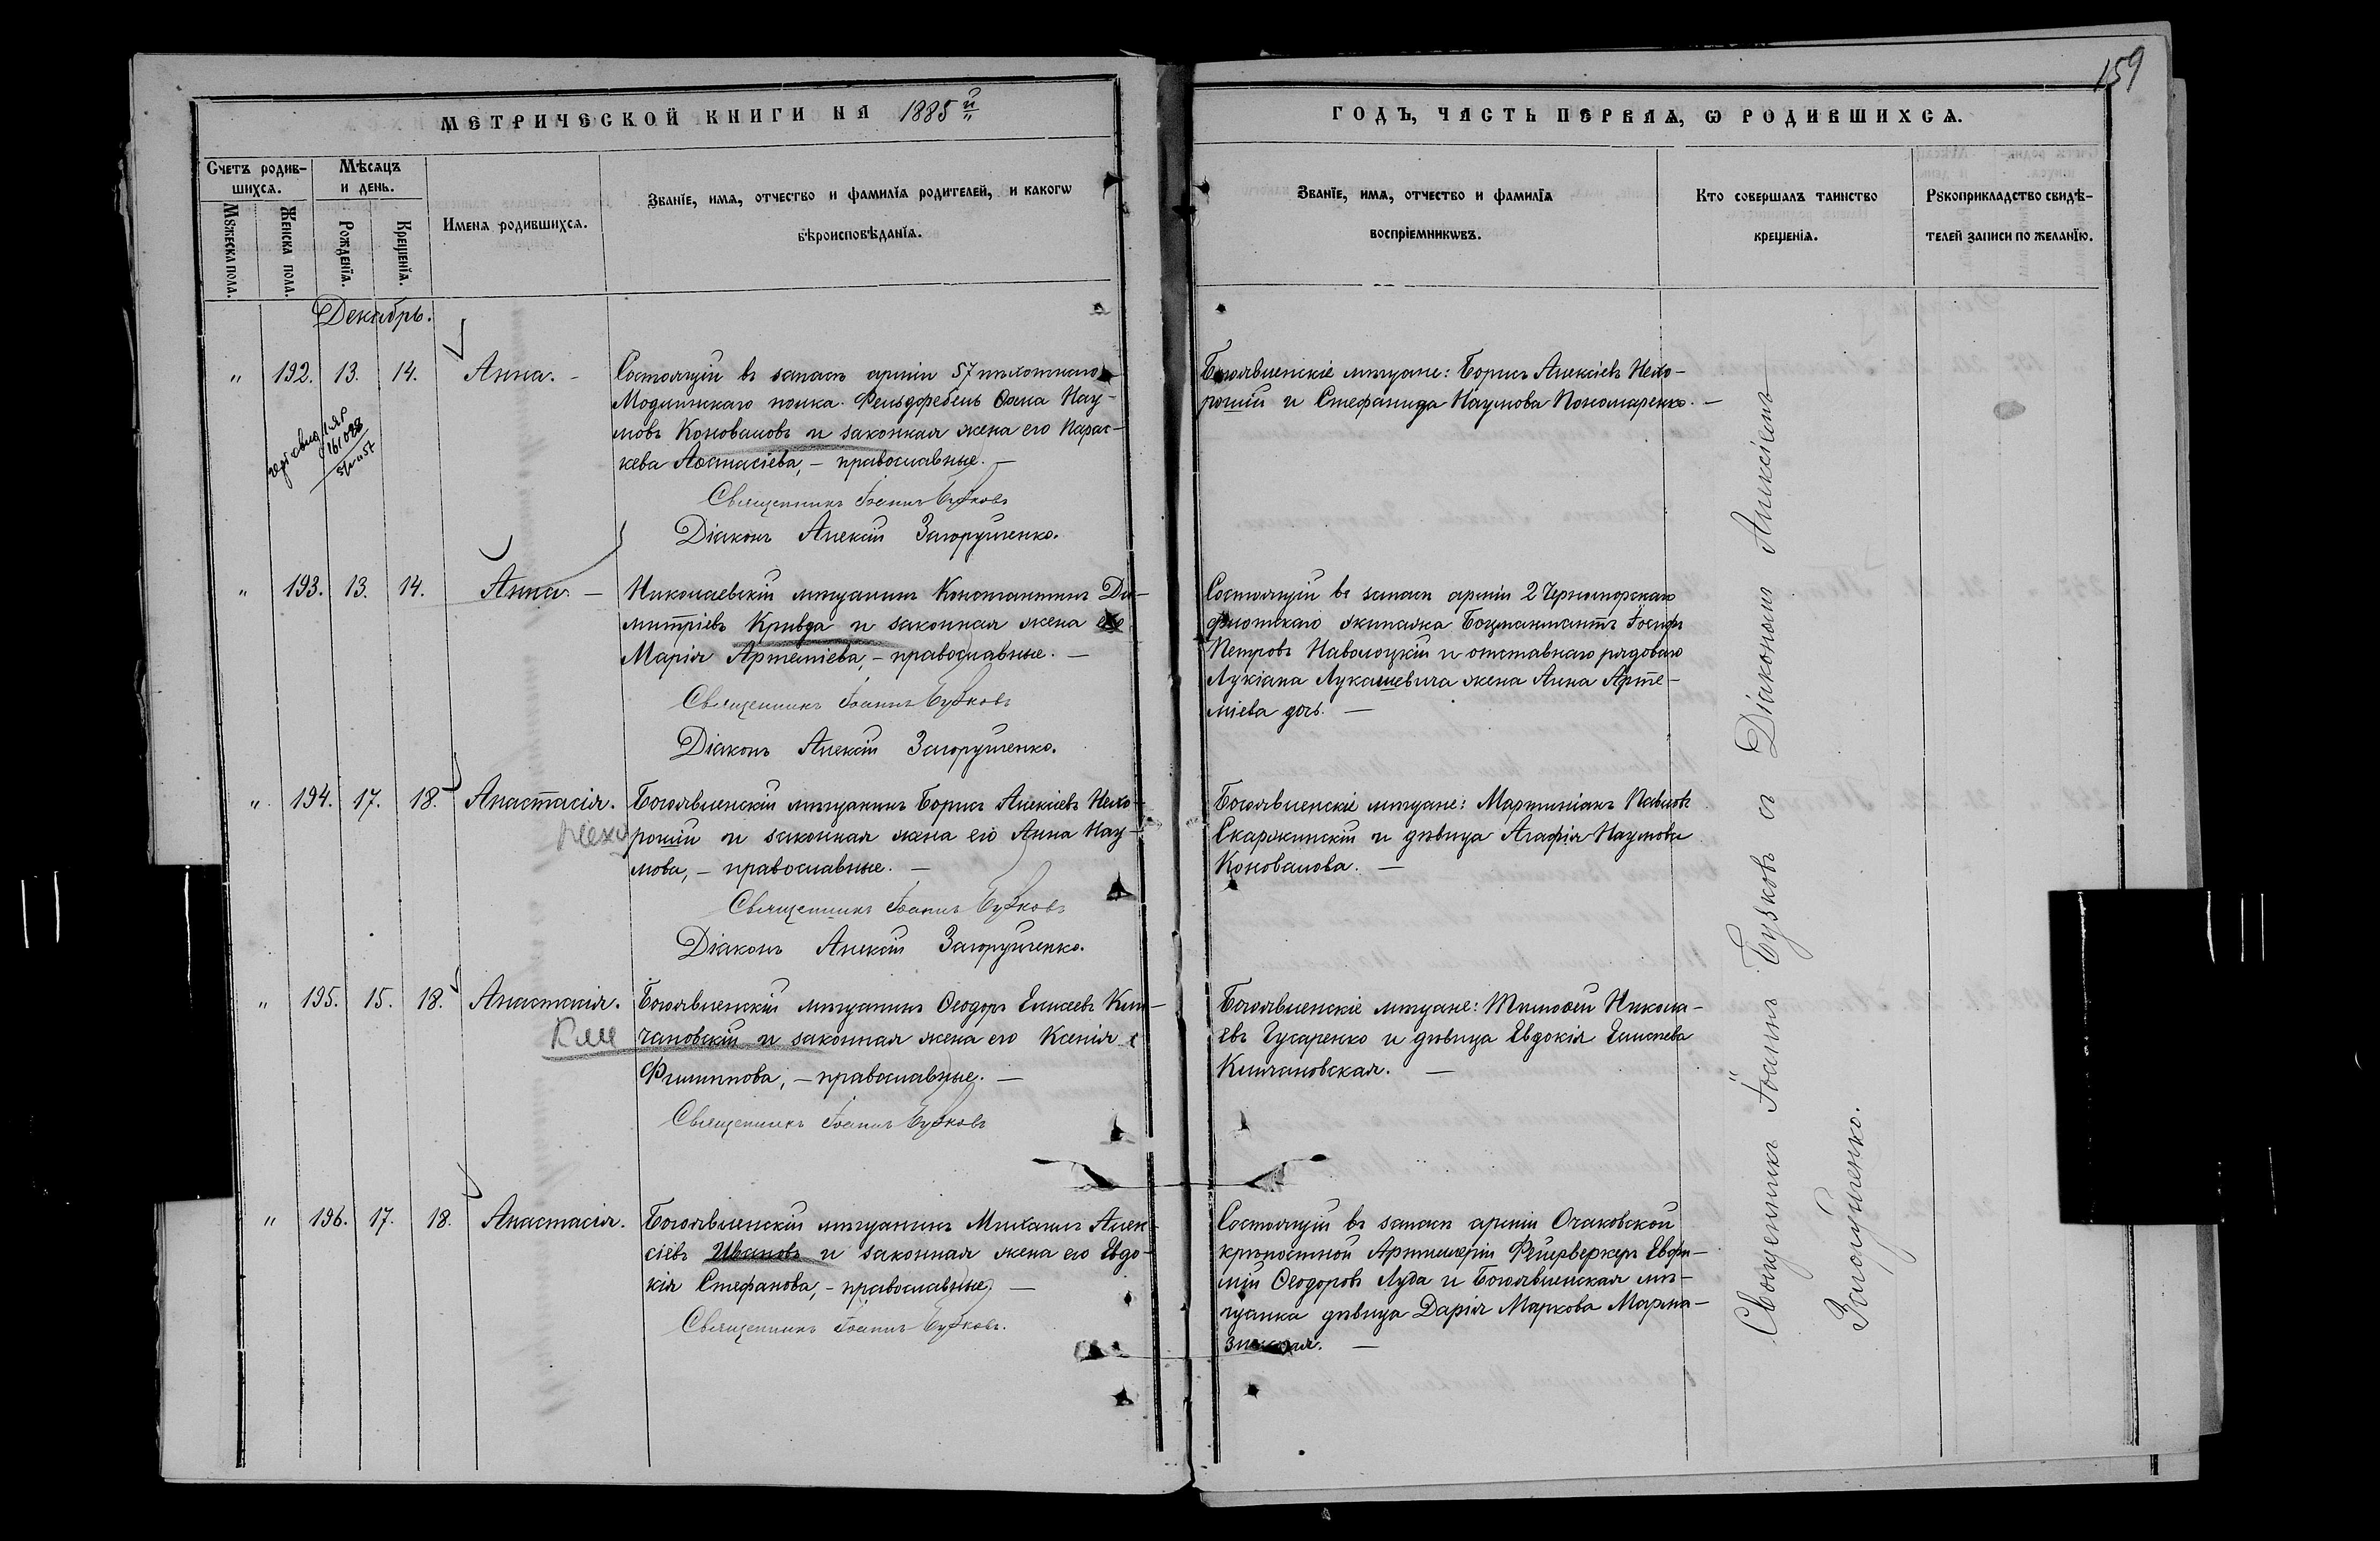 159
МЕТРИЧЕСКОЙ КНИГИ НА 1885й
ГОДЪ, ЧАСТЬ ПЕРВАЯ, Ѡ РОДИВШИХСѦ.
Счетъ родив-
шихсѧ.
Мꙋжеска пола.
Женска пола.
Мѣсѧцъ
и день.
Рожденїѧ.
Крещенїѧ.
Имена родившихсѧ.
Званїе, имѧ, отчество и фамилїѧ родителей, и какогѡ
вѣроисповѣданїѧ.
Званїе, имѧ, отчество и фамилїѧ
воспрїемникѡвъ.
Кто совершалъ таинство
крещенїѧ.
Рꙋкоприкладство свидѣ-
телей записи по желанїю.
Декабрь.
" 192. 13. 14. Анна. –
Состоящій въ запасѣ арміи 57 пѣхотнаго
Модлинскаго полка Фельдфебель Ѳома Нау-
мовъ Коноваловъ и законная жена его Парас-
кева Аѳанасіева, – православные. –
Священникъ Іоаннъ Бузковъ
Діаконъ Алексій Загорульченко.
Богоявленскіе мѣщане: Борисъ Алексіевъ Нехо-
рошій и Стефанида Наумова Пономаренко. –
" 193. 13. 14. Анна. –
Николаевскій мѣщанинъ Константинъ Ди-
митріевъ Кривда и законная жена его
Марія Артеміева, – православные. –
Священникъ Іоаннъ Бузковъ
Діаконъ Алексій Загорульченко.
Состоящій въ запасѣ арміи 2 Черноморскаго
флотскаго экипажа Боцманматъ Іосифъ
Петровъ Наволоцкій и отставнаго рядоваго
Лукіана Лукашевича жена Анна Арте-
міева дочь. –
" 194. 17. 18. Анастасія.
Богоявленскій мѣщанинъ Борисъ Алексіевъ Нехо-
рошій и законная жена его Анна Нау-
мова, – православные. –
Нехо
Священникъ Іоаннъ Бузковъ
Діаконъ Алексій Загорульченко.
Богоявленскіе мѣщане: Мартиніанъ Павловъ
Скаржинскій и дѣвица Агафія Наумова
Коновалова. –
" 195. 15. 18. Анастасія.
Богоявленскій мѣщанинъ Ѳеодоръ Елисеевъ Кли-
чановскій и законная жена его Ксенія
Филиппова, – православные. –
Кли
Священникъ Іоаннъ Бузковъ
Богоявленскіе мѣщане: Тимоѳей Никола-
евъ Гусаренко и дѣвица Евдокія Елисеева
Кличановская. –
" 196. 17. 18. Анастасія.
Богоявленскій мѣщанинъ Михаилъ Алек-
сіевъ Ивановъ и законная жена его Евдо-
кія Стефанова, – православные. –
Священникъ Іоаннъ Бузковъ.
Состоящій въ запасѣ арміи Очаковской
крѣпостной Артиллеріи Фейерверкеръ Евфи-
мій Ѳеодоровъ Луда и Богоявленская мѣ-
щанка дѣвица Дарія Маркова
Священникъ Іоаннъ Бузковъ съ Діакономъ Алексіемъ
Загорульченко.